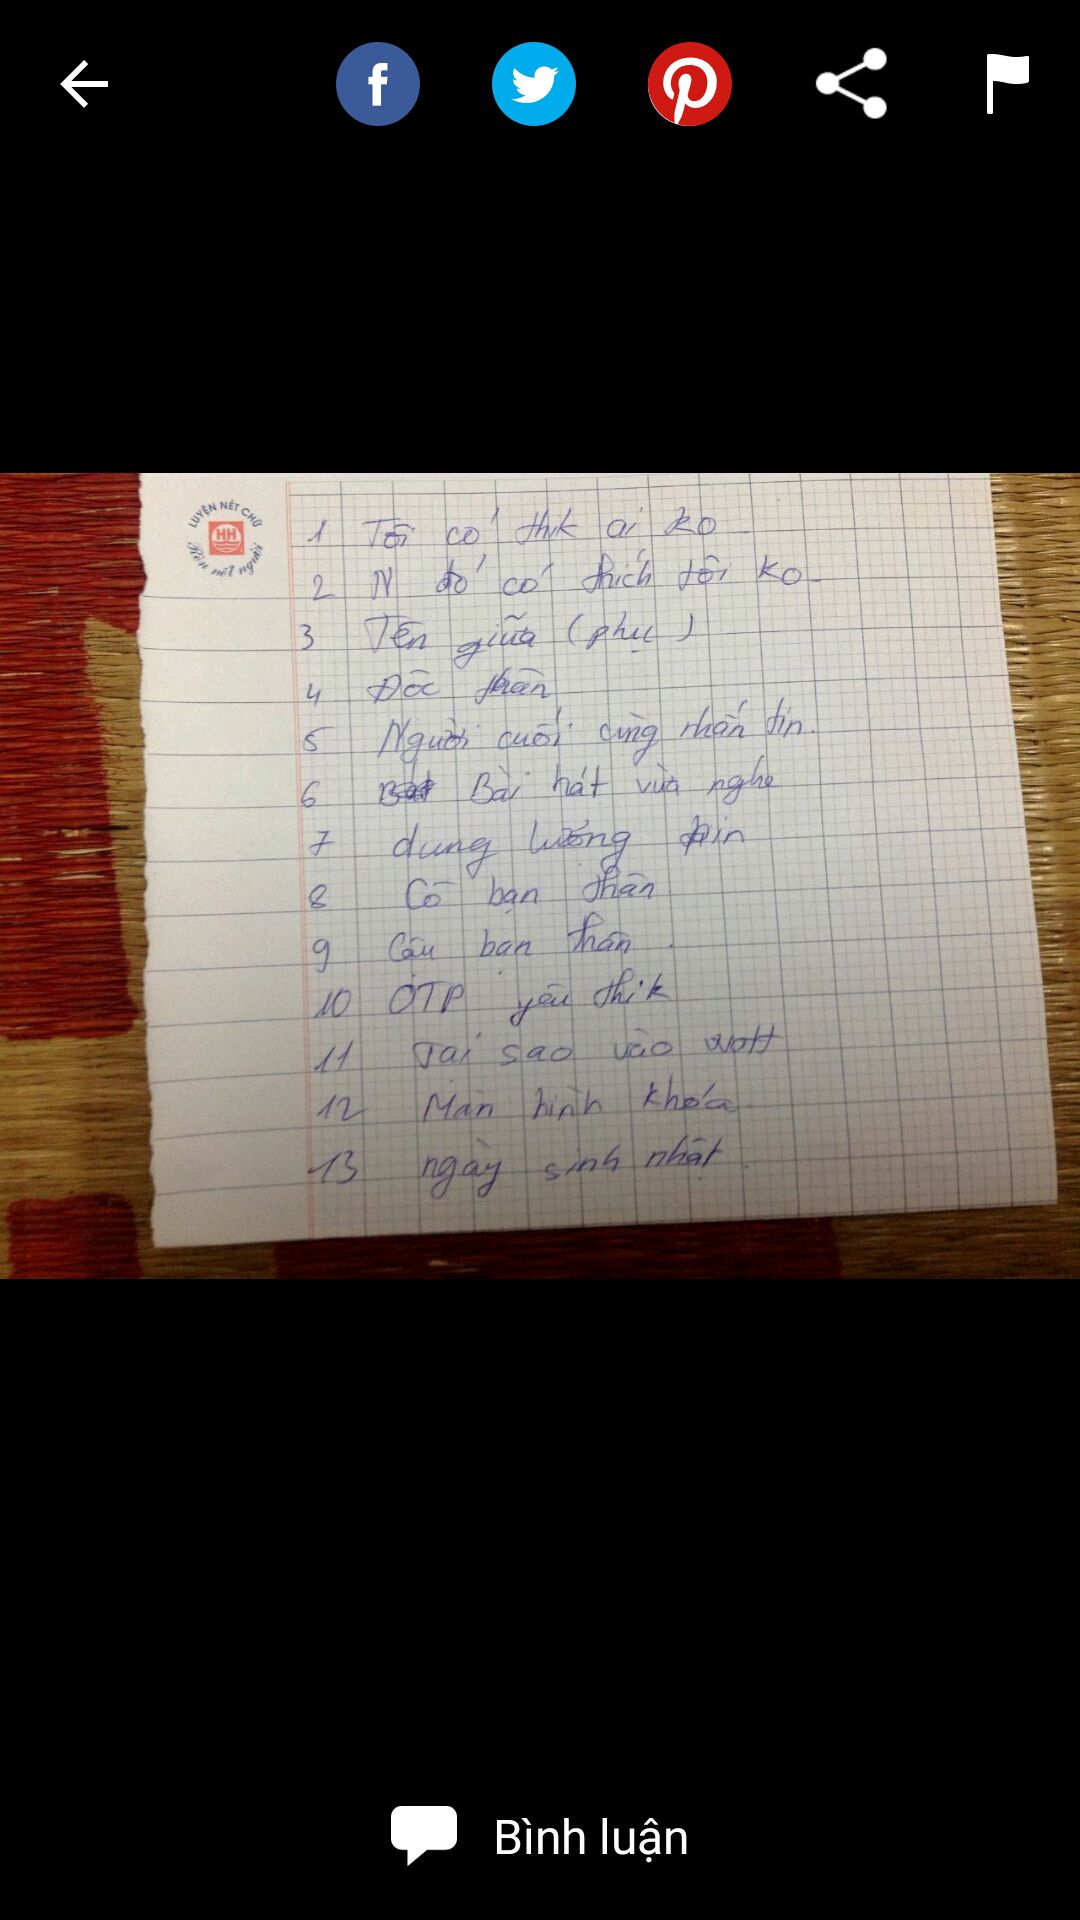 LUYỆN NÉT CHỮ
HH
Rèn nết người
1 Tôi có thik ai ko
2 N đó có thích tôi ko
3 Tên giữa (phụ)
4 Độc thân
5 Người cuối cùng nhắn tin.
6 Bài hát vừa nghe
7 dung lượng pin
8 Cô bạn thân
9 Cậu bạn thân.
10 OTP yêu thik
11 Tại sao vào
12 Màn hình khóa
13 ngày sinh nhật.
Bình luận